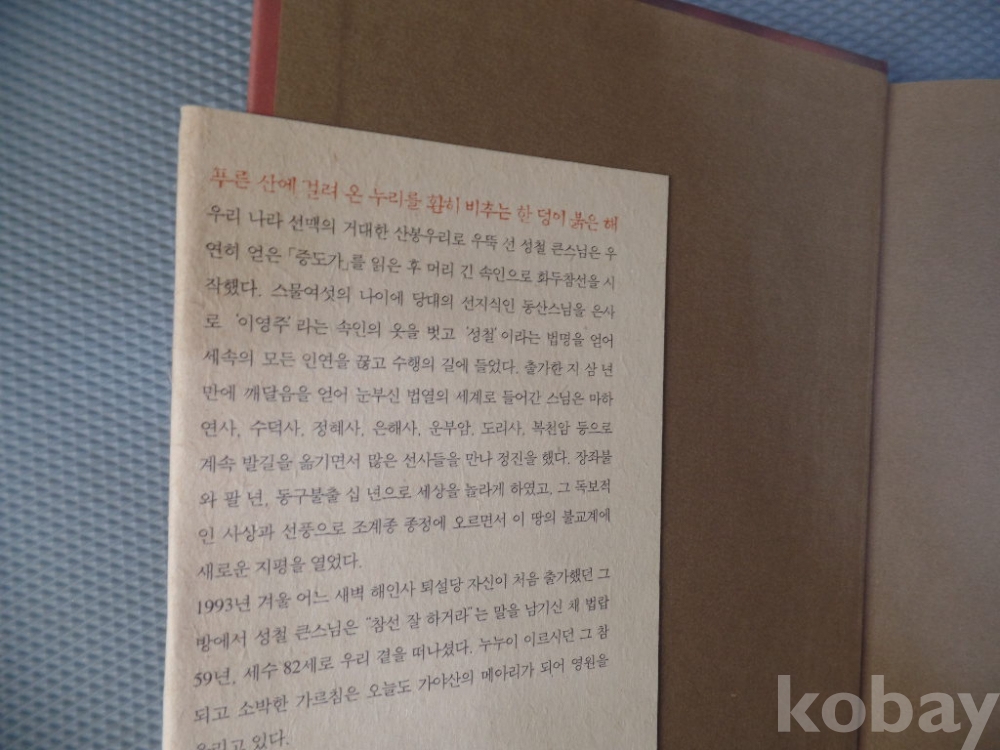 푸른 산에 걸려 온 누리를 환히 비추는 한 덩이 붉은 해
우리 나라 선맥의 거대한 산봉우리로 우뚝 선 성철 큰스님은 우
연히 얻은 「증도가」를 읽은 후 머리 긴 속인으로 화두참선을 시
작했다. 스물여섯의 나이에 당대의 선지식인 동산스님을 은사
로 '이영주'라는 속인의 옷을 벗고 '성철'이라는 법명을 얻어
세속의 모든 인연을 끊고 수행의 길에 들었다. 출가한 지 삼 년
만에 깨달음을 얻어 눈부신 법열의 세계로 들어간 스님은 마하
연사, 수덕사, 정혜사, 은해사, 운부암, 도리사, 복천암 등으로
계속 발길을 옮기면서 많은 선사들을 만나 정진을 했다. 장좌불
와 팔 년, 동구불출 십 년으로 세상을 놀라게 하였고, 그 독보적
인 사상과 선풍으로 조계종 종정에 오르면서 이 땅의 불교계에
새로운 지평을 열었다.
1993년 겨울 어느 새벽 해인사 퇴설당 자신이 처음 출가했던 그
방에서 성철 큰스님은 "참선 잘 하거라"는 말을 남기신 채 법랍
59년, 세수 82세로 우리 곁을 떠나셨다. 누누이 이르시던 그 참
되고 소박한 가르침은 오늘도 가야산의 메아리가 되어 영원을
울리고 있다.
kobay